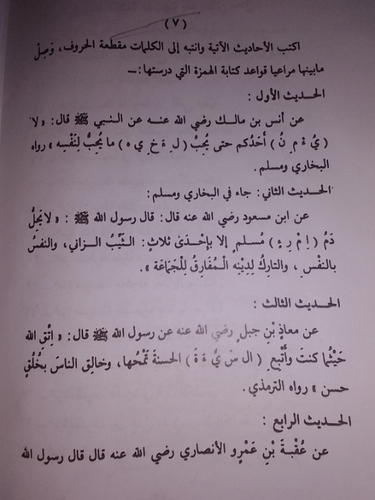 (٧)
اكتب الأحاديث الآتية وانتبه إلى الكلمات مقطعة الحروف، وَصِلْ
مابينها مراعيا قواعد كتابة الهمزة التي درستها :—
الحديث الأول :
عن أنس بن مالك رضي الله عنه عن النبي ﷺ قال: « لا
( يُ ؤْ مِ نُ ) أَحَدُكم حتى يُحِبُّ ( لِ أَ خِ ي هِ ) ما يُحِبُّ لِنَفْسِهِ » رواه
البخاري ومسلم.
الحديث الثاني: جاء في البخاري ومسلم:
عن ابن مسعود رضي الله عنه قال: قال رسول الله ﷺ : « لا يَحِلُّ
دَمُ ( اِ مْ رِ ءٍ ) مُسلمٍ إلا بإحْدَى ثلاثٍ: الثَّيِّبُ الزاني، والنفسُ
بالنفْسِ، والتاركُ لِدِيْنِه الْمُفَارِقُ لِلْجَمَاعَة ».
الحديث الثالث :
عن معاذِ بْنِ جبلٍ رضي الله عنه عن رسول الله ﷺ قال: « اتَّقِ الله
حَيْثُما كنتَ وأَتْبِعِ ( ال سَّ يِّ ئَ ةَ ) الحسنةَ تَمْحُها، وخالِقِ الناسَ بخُلُقٍ
حسن » رواه الترمذي.
الحديث الرابع :
عن عُقْبَةَ بْنِ عَمْرٍو الأنصاري رضي الله عنه قال قال رسول الله